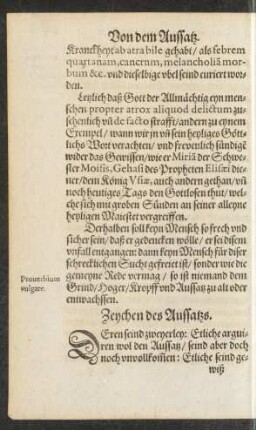 Von dem Aussatz.
Kranckheyt ab atra bile gehabt / als febrem
quartanam, cancrum, melancholiā mor-
bum &c. vnd dieselbige vbel seind curiert wor-
den.
Letzlich daß Gott der Allmächtig eyn men-
schen propter atrox aliquod delictum zu-
sehenlich vn̄ de facto strafft / andern zu eynem
Exempel / wann wir jn vn̄ sein heyliges Gött-
lichs Wort verachten / vnd freuenlich sündigē
wider das Gewissen / wie er Miriā der Schwe-
ster Moisis, Gehasi des Propheten Elisęi die-
ner / dem König Vsiæ, auch andern gethan / vn̄
noch heutiges Tags den Gottlosen thut / wel-
che sich mit groben Sünden an seiner alleyne
heyligen Maiestet vergreiffen.
Derhalben soll keyn Mensch so frech vnd
sicher sein / daß er gedencken wölle / er sei disem
vnfall entgangen: dann keyn Mensch für diser
schrecklichen Sucht gefreiet ist / sonder wie die
gemeyne Rede vermag / so ist niemand dem
Prouerbium
vulgare.
Grind / Hoger / Kropff vnd Aussatz zu alt oder
entwachssen.
Zeychen des Aussatzs.
DEren seind zweyerley: Etliche argui-
ren wol den Aussatz / seind aber doch
noch vnvollkom̄en: Etliche seind ge-
wiß